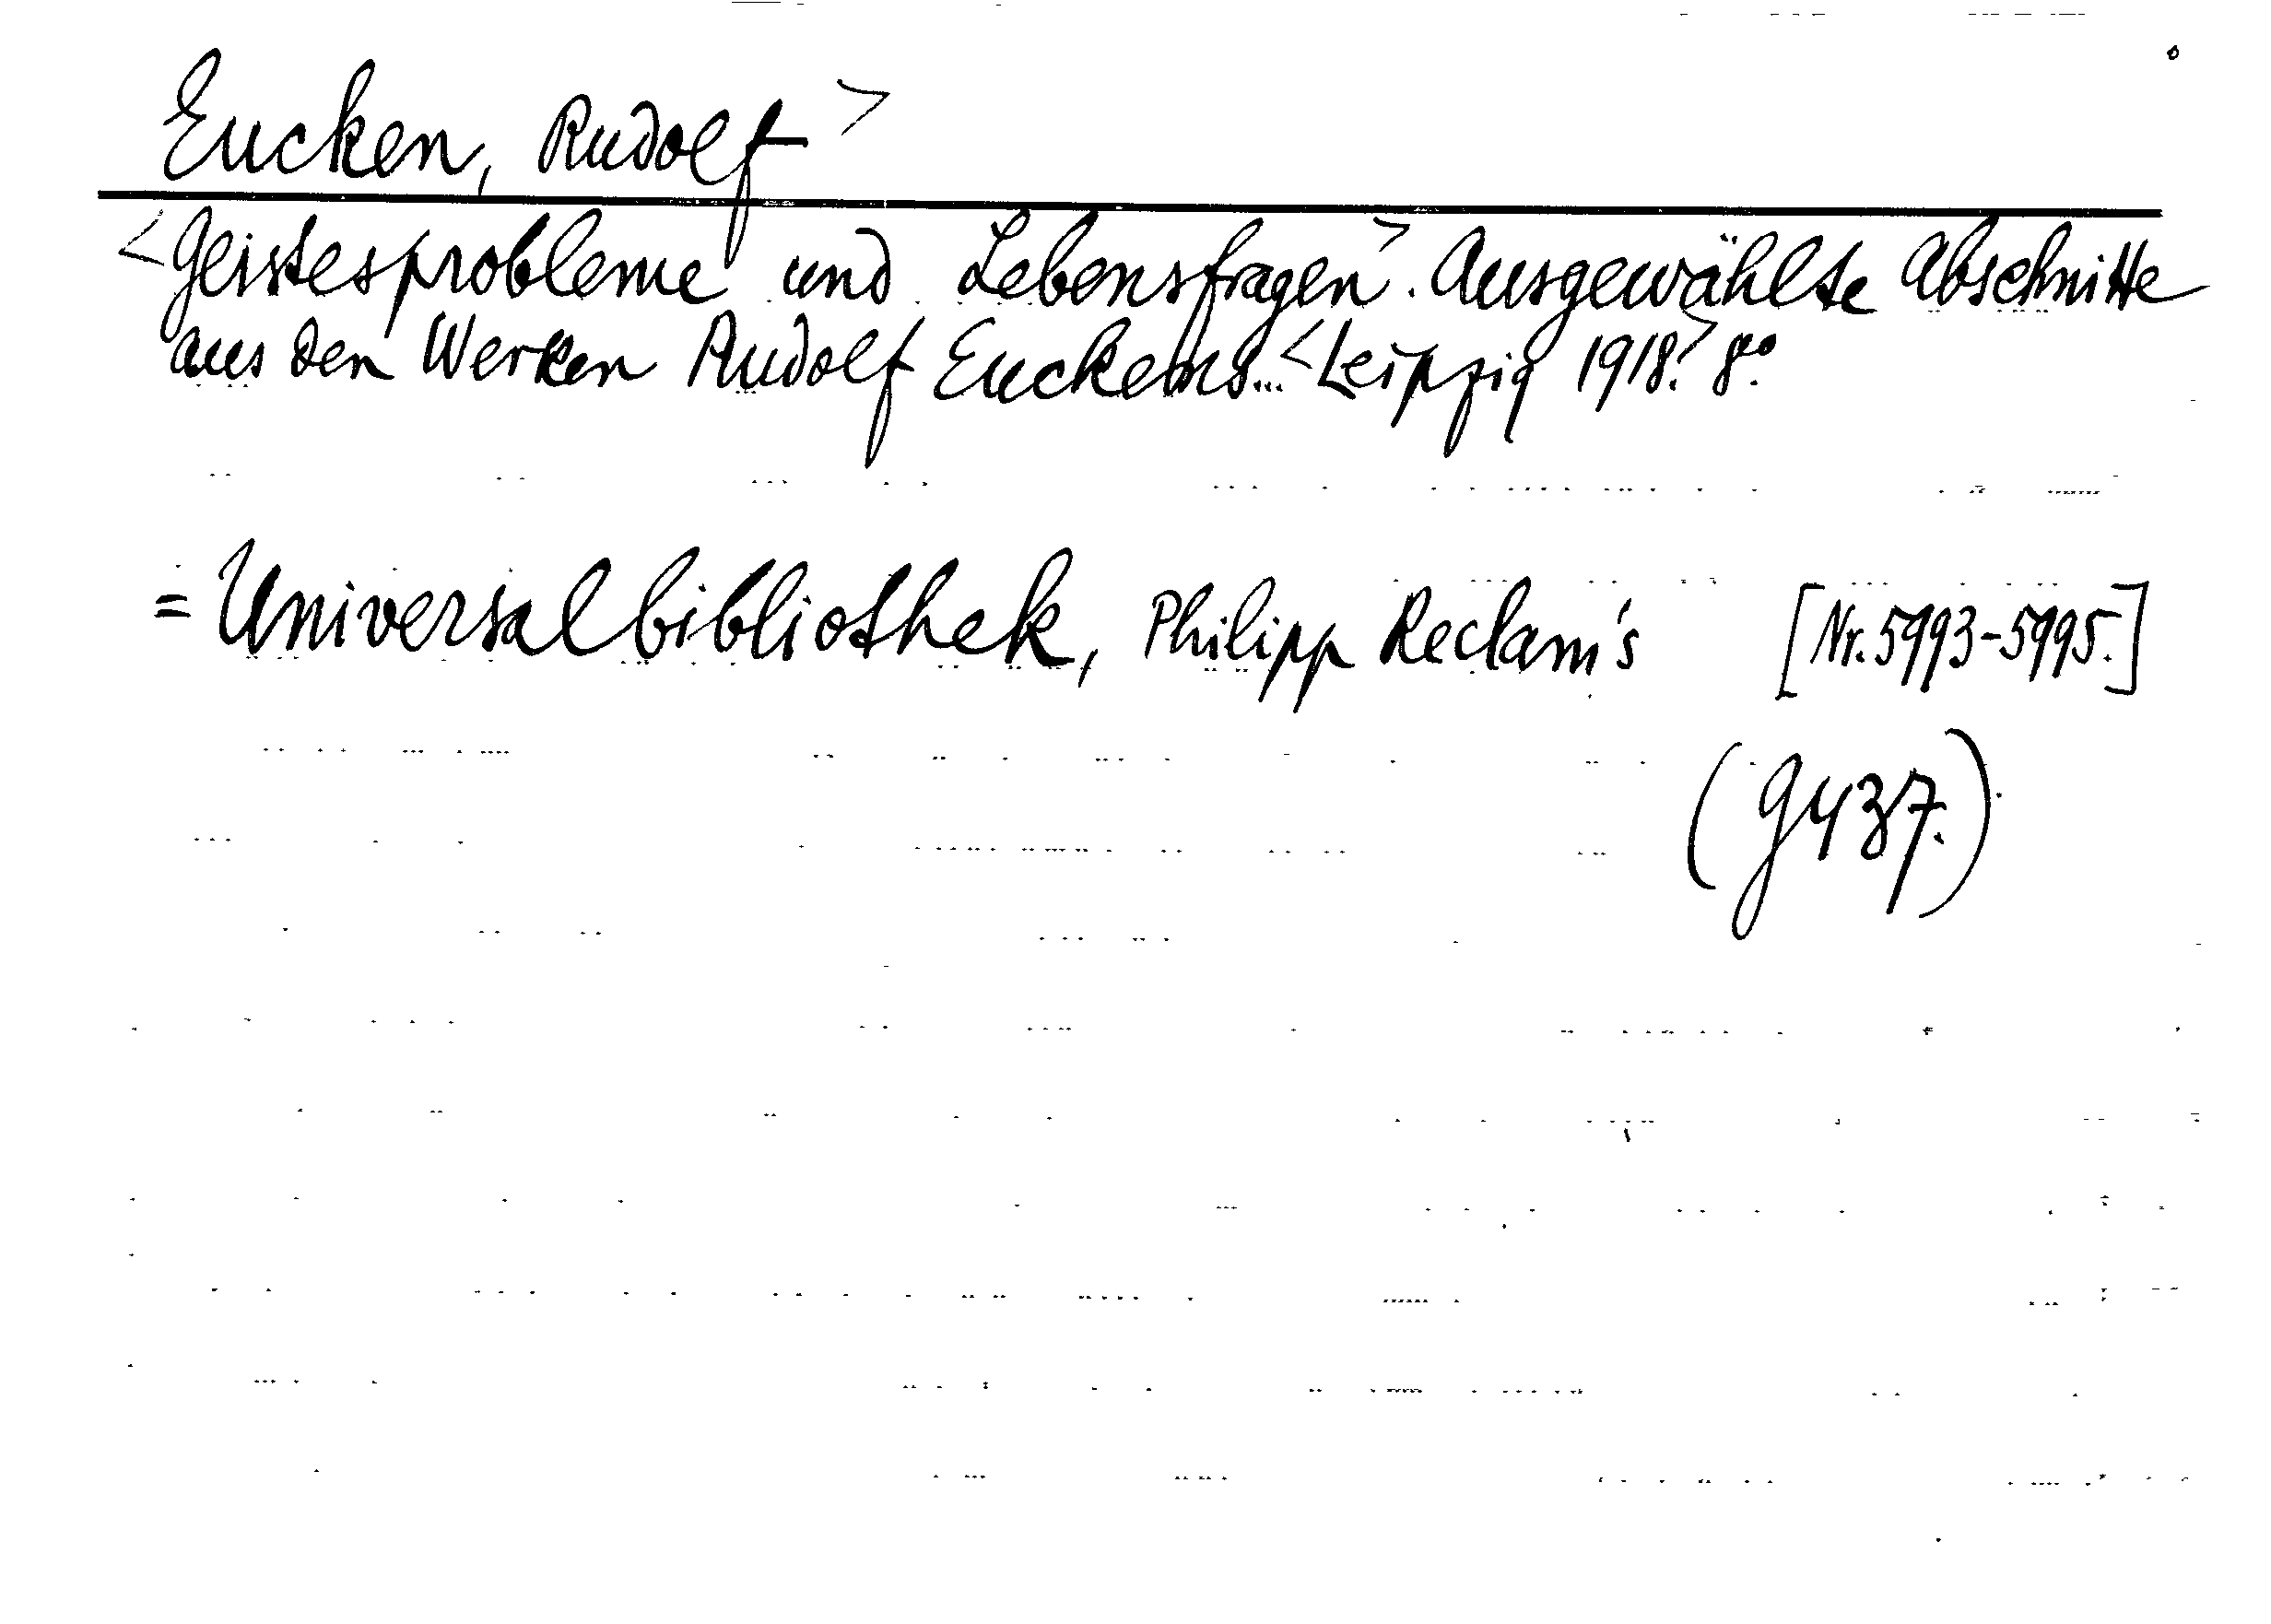 Eucken, Rudolf>
<Geistesprobleme und Lebensfragen>. Ausgewählte Abschnitte
aus den Werken Rudolf Euckens... <Leipzig 1918.> 8°.
= Universalbibliothek, Philipp Reclam's [Nr. 5993-5995.]
(9437.)